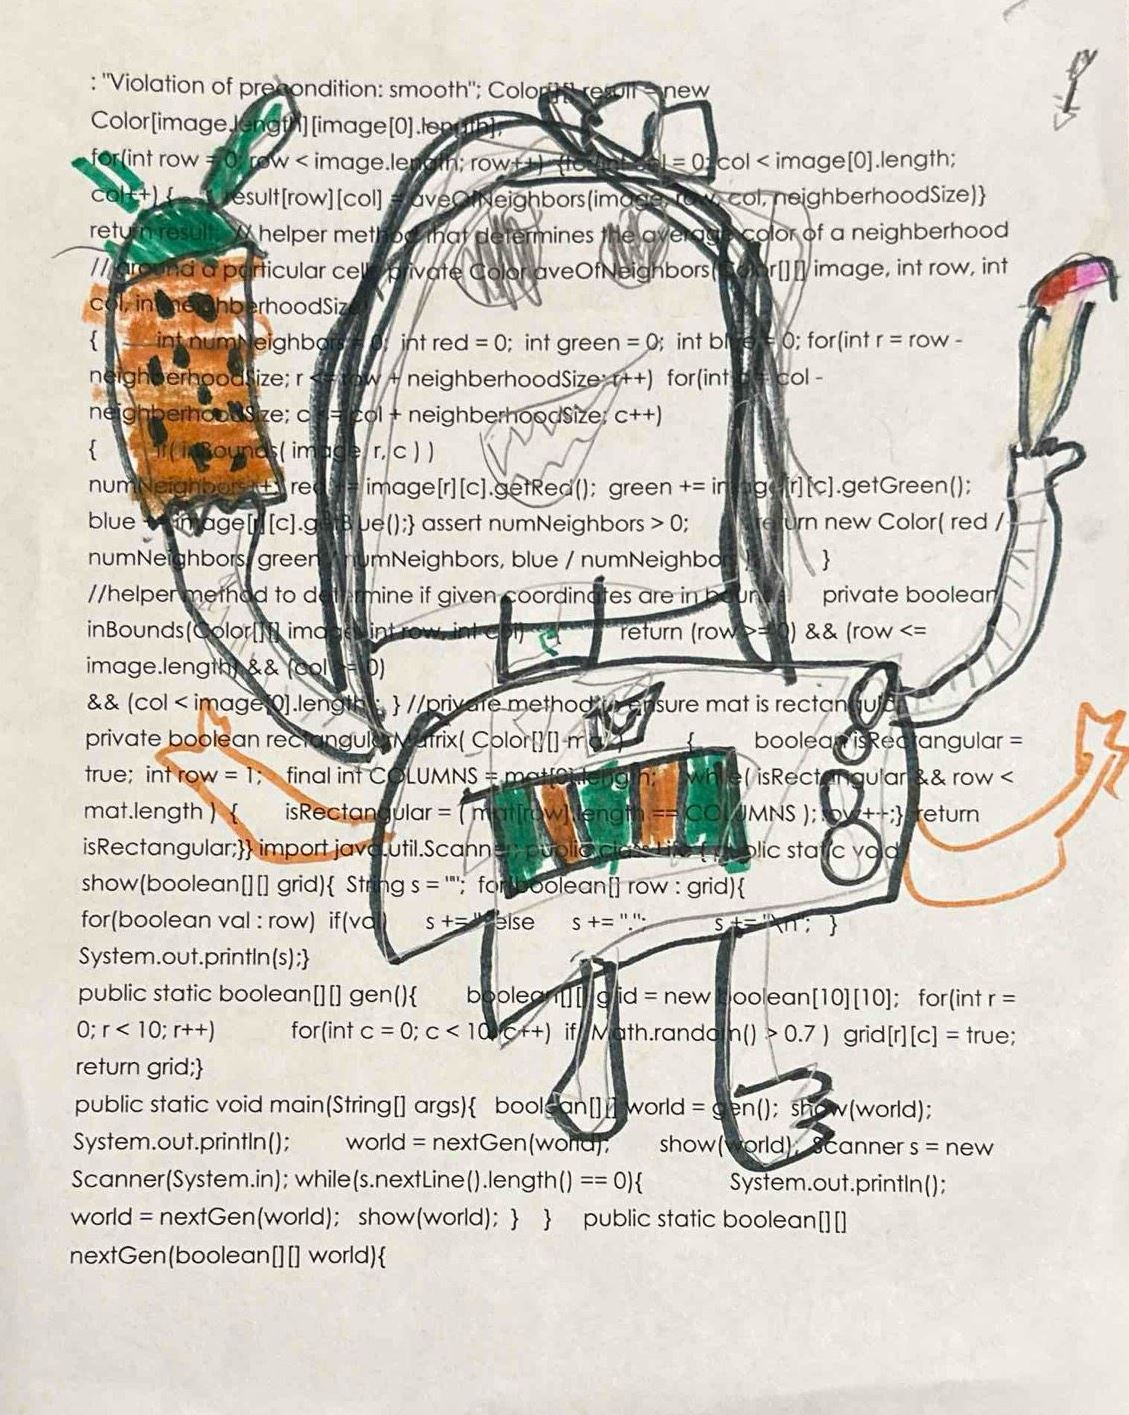 : "Violation of precondition: smooth"; Color[][] result = new
Color[image.length][image[0].length];
for(int row = 0; row < image.length; row++) {for(int col = 0; col < image[0].length;
col++) { result[row][col] = aveOfNeighbors(image, row, col, neighberhoodSize)}
return result; // helper method that determines the average color of a neighberhood
// around a particular cell. private Color aveOfNeighbors(Color[][] image, int row, int
col, int neighberhoodSize)
{ int numNeighbors = 0; int red = 0; int green = 0; int blue = 0; for(int r = row -
neighberhoodSize; r <= row + neighberhoodSize; r++) for(int c = col -
neighberhoodSize; c <= col + neighberhoodSize; c++)
{ if( inBounds( image, r, c ) )
numNeighbors++; red += image[r][c].getRed(); green += image[r][c].getGreen();
blue += image[r][c].getBlue();} assert numNeighbors > 0; return new Color( red /
numNeighbors, green / numNeighbors, blue / numNeighbors ); }
//helper method to determine if given coordinates are in bounds private boolean
inBounds(Color[][] image, int row, int col) { return (row >= 0) && (row <=
image.length) && (col >= 0)
&& (col < image[0].length); } //private method to ensure mat is rectangular
private boolean rectangularMatrix( Color[][] mat ) { boolean isRectangular =
true; int row = 1; final int COLUMNS = mat[0].length; while( isRectangular && row <
mat.length ) { isRectangular = ( mat[row].length == COLUMNS ); row++;} return
isRectangular;}} import java.util.Scanner; public class Life { public static void
show(boolean[][] grid){ String s = ""; for(boolean[] row : grid){
for(boolean val : row) if(val) s += else s += "."; s += "\n"; }
System.out.println(s);}
public static boolean[][] gen(){ boolean[][] grid = new boolean[10][10]; for(int r =
0; r < 10; r++) for(int c = 0; c < 10; c++) if( Math.random() > 0.7 ) grid[r][c] = true;
return grid;}
public static void main(String[] args){ boolean[][] world = gen(); show(world);
System.out.println(); world = nextGen(world); show(world); Scanner s = new
Scanner(System.in); while(s.nextLine().length() == 0){ System.out.println();
world = nextGen(world); show(world); } } public static boolean[][]
nextGen(boolean[][] world){